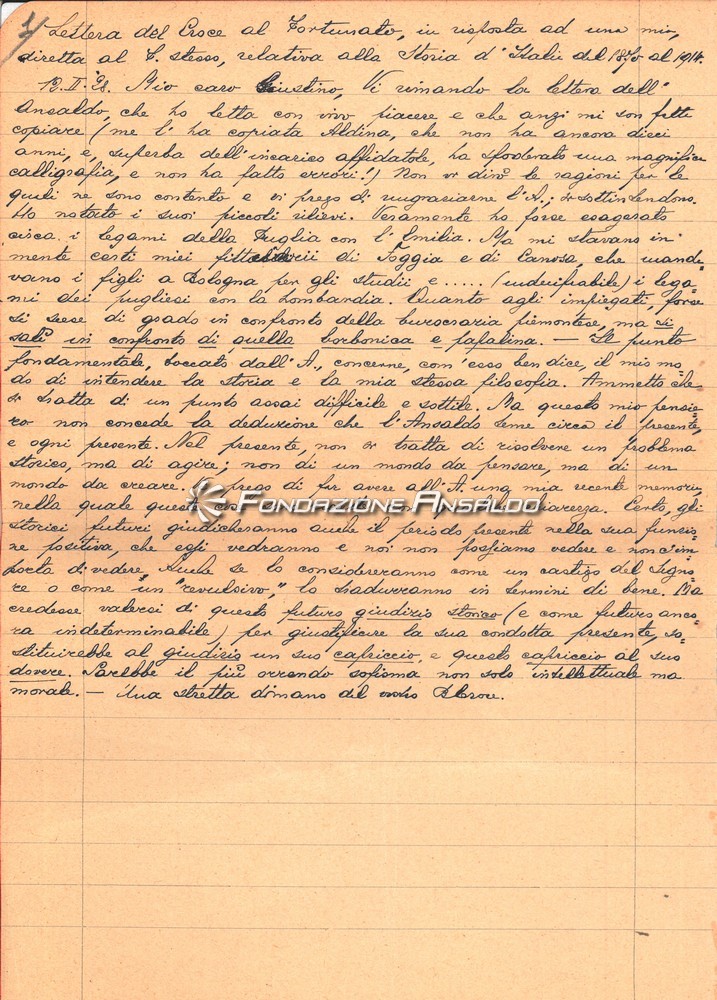 1/ Lettera del Croce al Fortunato, in risposta ad una mia,
diretta al F. stesso, relativa alla Storia d'Italia del 1870 al 1914.
12. II. 28. Mio caro Giustino, Vi rimando la lettera dell'
Ansaldo, che ho letta con vivo piacere e che anzi mi son fatta
copiare (me l'ha copiata Aldina, che non ha ancora dieci
anni, e, superba dell'incarico affidatole, ha sfoderato una magnifica
calligrafia, e non ha fatto errori!) Non vi dirò le ragioni per le
quali ne sono contento e vi prego di ringraziarne l'A.; si sottintendono.
Ho notato i suoi piccoli rilievi. Veramente ho forse esagerato
circa i legami della Puglia con l'Emilia. Ma mi stavano in
mente certi miei fittavoli di Foggia e di Canosa, che manda=
vano i figli a Bologna per gli studii e ..... (indecifrabile) i lega=
mi dei pugliesi con la Lombardia. Quanto agli impiegati, forse
si scese di grado in confronto della burocrazia piemontese, ma si
salì in confronto di quella borbonica e papalina. — Il punto
fondamentale, toccato dall'A., concerne, com'esso ben dice, il mio mo=
do di intendere la storia e la mia stessa filosofia. Ammetto che
si tratta di un punto assai difficile e sottile. Ma questo mio pensie=
ro non concede la deduzione che l'Ansaldo teme circa il presente,
e ogni presente. Nel presente, non si tratta di risolvere un problema
storico, ma di agire; non di un mondo da pensare, ma di un
mondo da creare. Vi prego di far avere all'A. una mia recente memoria,
nella quale questa cosa FONDAZIONE ANSALDO chiarezza. Certo, gli
storici futuri giudicheranno anche il periodo presente nella sua funzio=
ne positiva, che essi vedranno e noi non possiamo vedere e non c'im=
porta di vedere. Anche se lo considereranno come un castigo del Signo=
re o come un "revulsivo," lo tradurranno in termini di bene. Ma
credesse valersi di questo futuro giudizio storico (e come futuro anco=
ra indeterminabile) per giustificare la sua condotta presente, so=
stituirebbe al giudizio un suo capriccio, e questo capriccio al suo
dovere. Sarebbe il più orrendo sofisma non solo intellettuale ma
morale. — Una stretta di mano del vostro B. Croce.